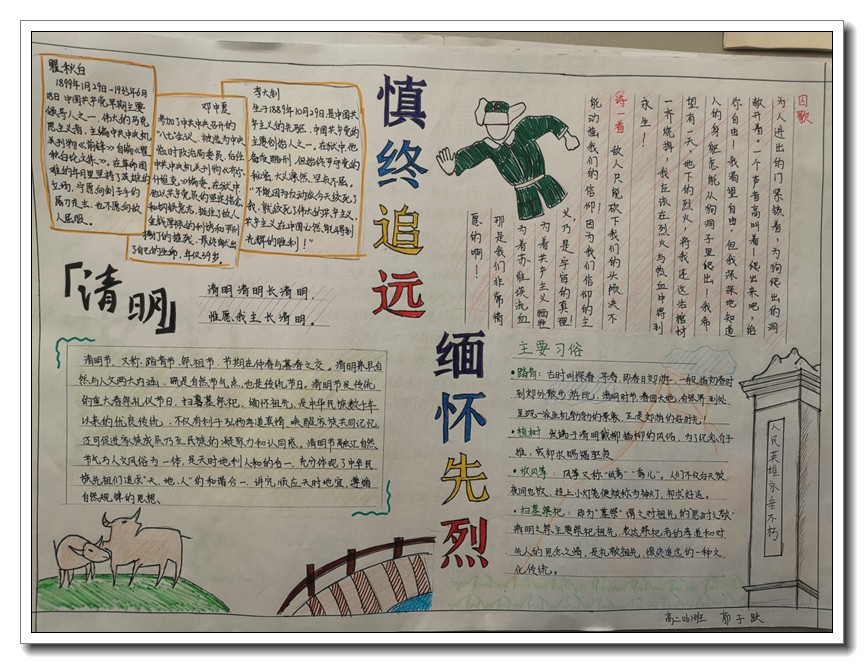 瞿秋白
1899年1月29日-1935年6月
18日 中国共产党早期主要
领导人之一，伟大的马克
思主义者，主编中共中央机
关刊物《前锋》自编《瞿
秋白论文集》，在革命困
难的年月里坚持了英雄的
立场，宁愿向刽子手的
屠刀走去，也不愿向敌
人屈服。
邓中夏
参加了中共中央召开的
"八七会议"，被选为中央
临时政治局委员，后任
李大钊
生于1889年10月29日，是中国共
产主义的先驱，中国共产党的
主要创始人之一，在狱中他
备受酷刑，但始终严守党的
秘密，大义凛然，坚贞不屈。
"不能因为反动派今天绞死了
我，就绞死了伟大的共产主义，
共产主义在中国必然能得到
光辉的胜利！"
慎终追远
缅怀先烈
「清明」
清明清明长清明，
惟愿我主长清明。
清明节，又称踏青节、祭祖节，节期在仲春与暮春之交。清明兼具自
然与人文两大内涵，既是自然节气点，也是传统节日。清明节是传统
的重大春祭礼仪节日，扫墓祭祀、缅怀祖先，是中华民族数千年
以来的优良传统，不仅有利于弘扬孝道亲情、唤醒家族共同记忆，
还可促进家族成员乃至民族的凝聚力和认同感。清明节融汇自然
节气与人文风俗为一体，是天时地利人和的合一，充分体现了中华民
族先祖们追求"天、地、人"的和谐合一，讲究顺应天时地宜、遵循
自然规律的思想。
囚歌
为人进出的门紧锁着，为狗爬出的洞
敞开着。一个声音高叫着—爬出来吧，给
你自由！我渴望自由，但我深深地知道
人的身躯怎能从狗洞子里爬出！我希
望有一天，地下的烈火，将我连这活棺材
一齐烧掉，我应该在烈火与热血中得到
永生！
诗一首 敌人只能砍下我们的头颅，决不
能动摇我们的信仰！因为我们信仰的主
义，乃是宇宙的真理！
为着共产主义牺牲
为着苏维埃流血
那是我们非常情
愿的啊！
主要习俗
•踏青：古时叫探春、寻春，即春日郊游，
•植树
•放风筝：风筝又称"纸鸢""鸢儿"。人们不仅白天放
夜间也放，挂上小灯笼便被称为神灯，祈求好运。
清明之祭主要祭祀祖先，表达祭祀者的孝道和对
先人的思念之情，是礼敬祖先、慎终追远的一种文
化传统。
人民英雄永垂不朽